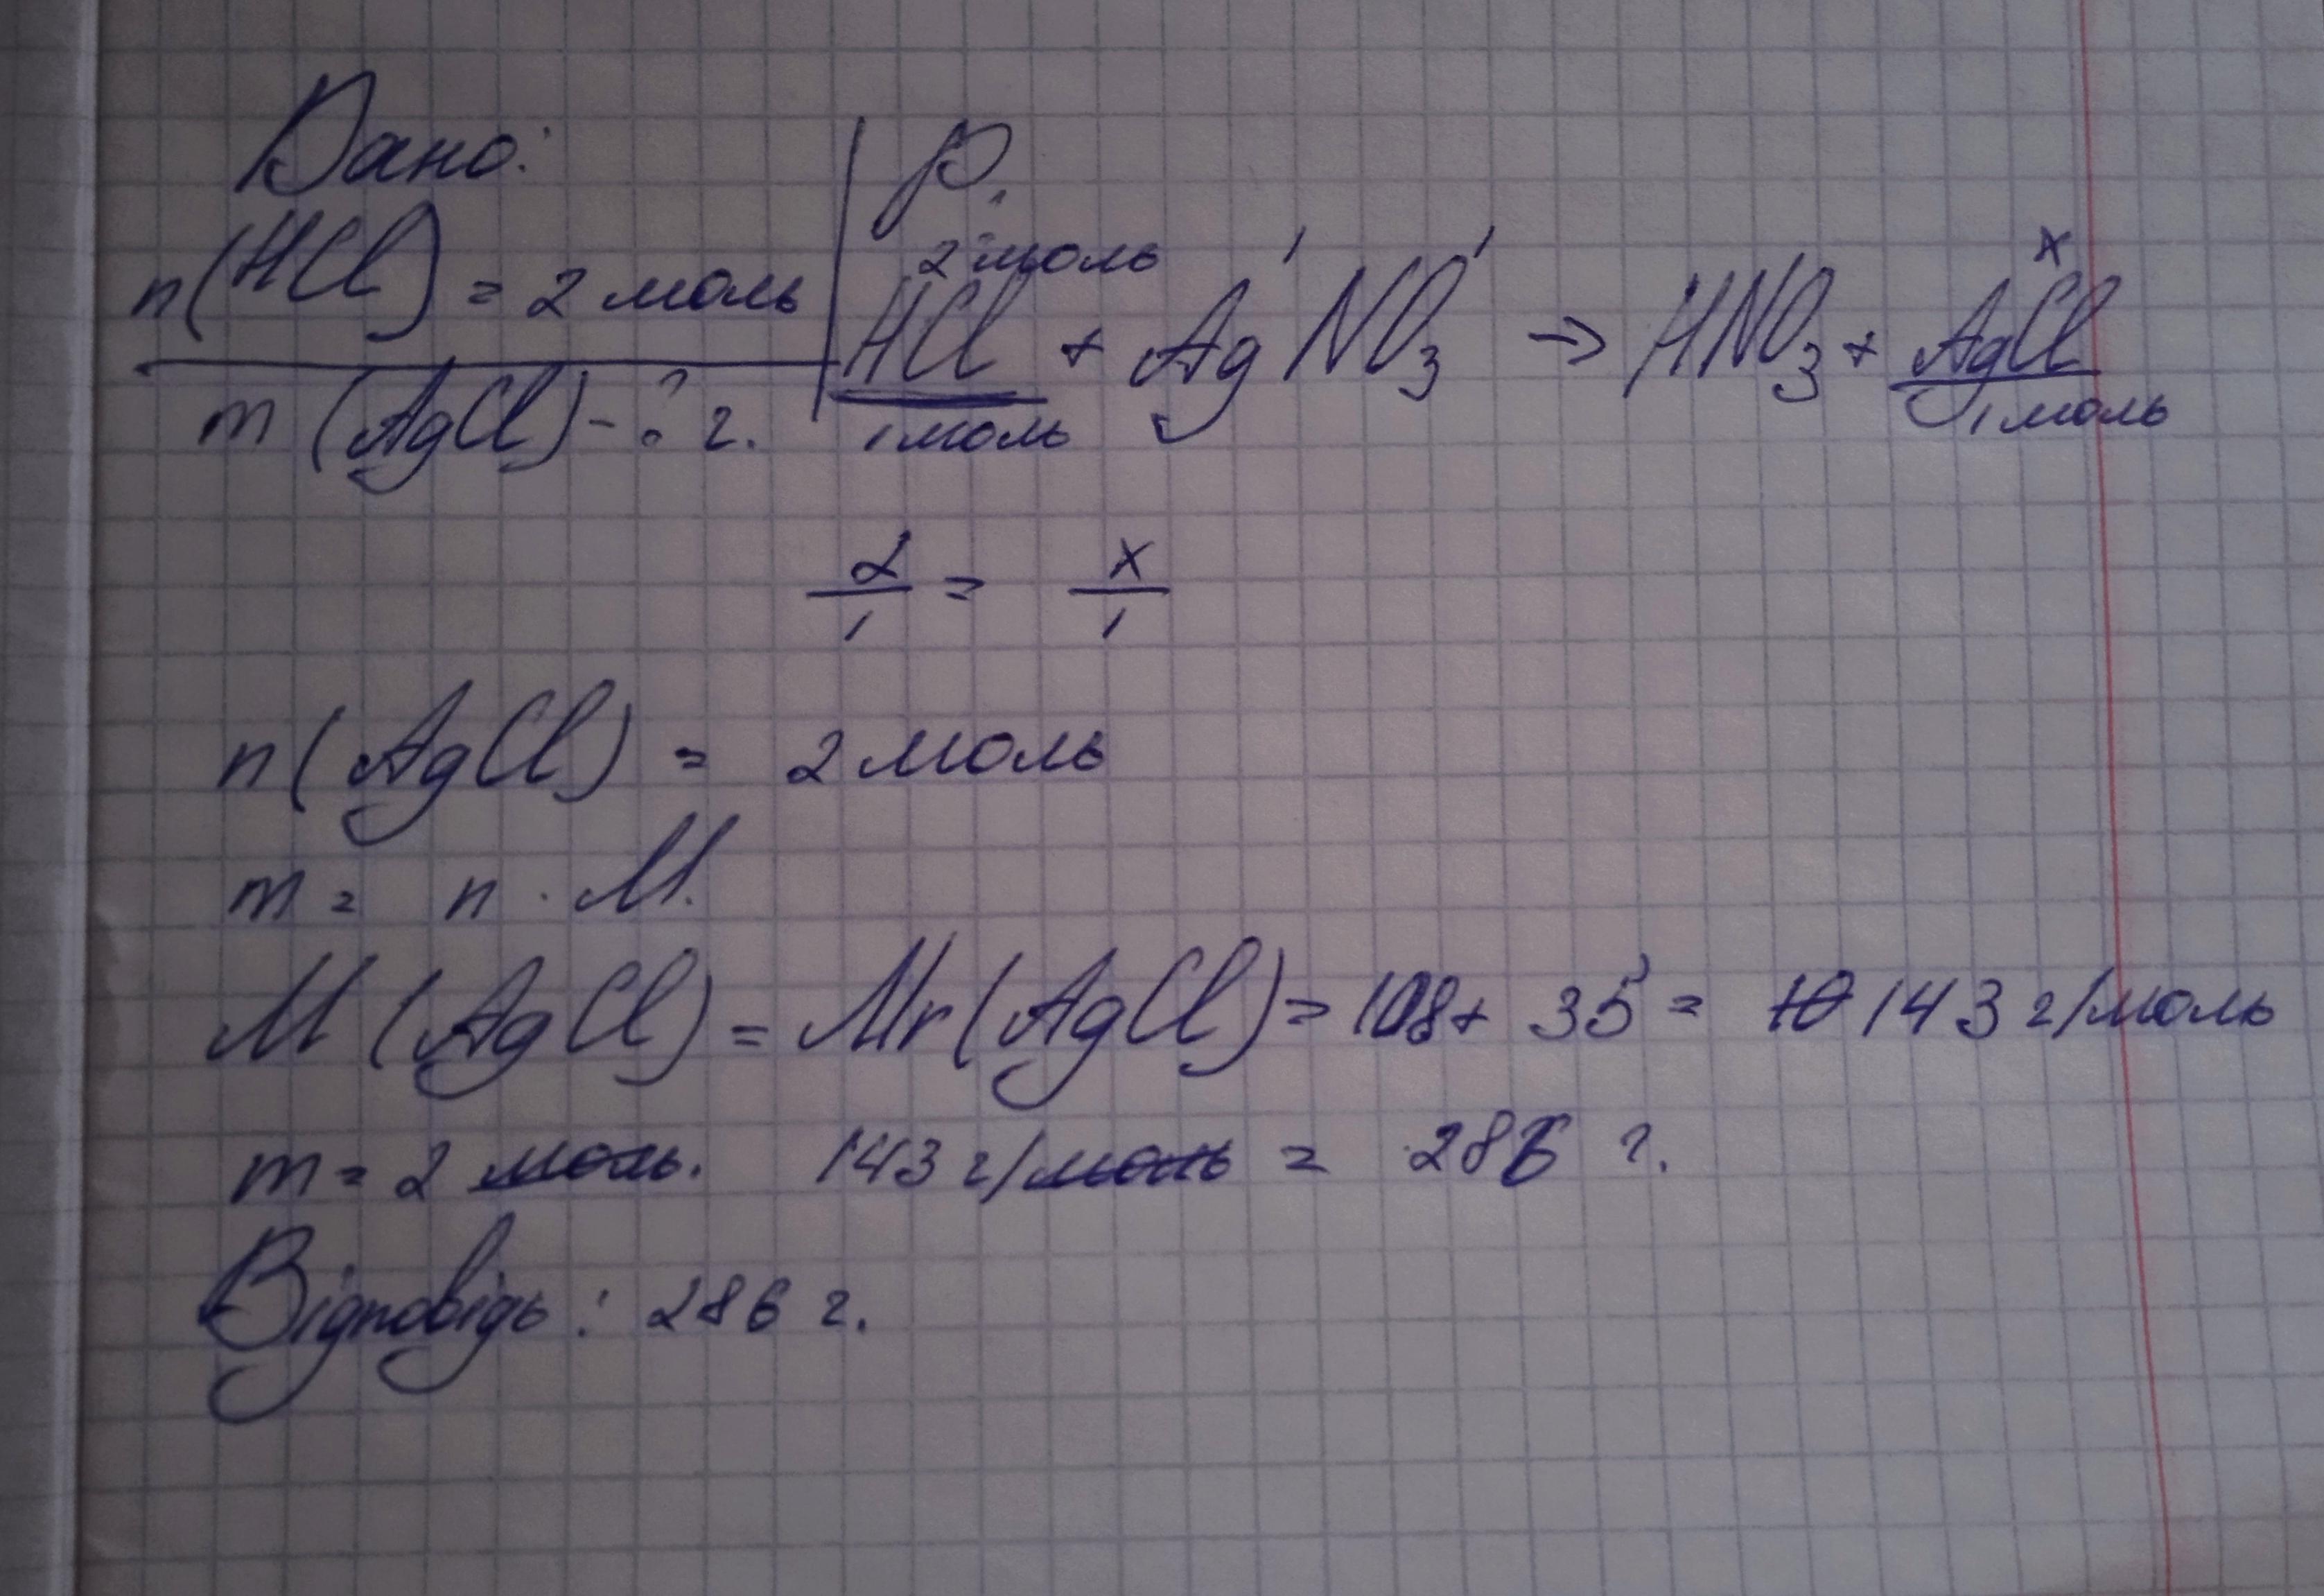 Дано:
n(HCl) = 2 моль
m (AgCl) - ? г.
Р.
2 моль x
HCl + AgNO3 → HNO3 + AgCl
1 моль 1 моль
2/1 = x/1
n(AgCl) = 2 моль
m = n · M.
M (AgCl) = Mr(AgCl) = 108 + 35 = 143 г/моль
m = 2 моль. 143 г/моль = 286 г.
Відповідь: 286 г.